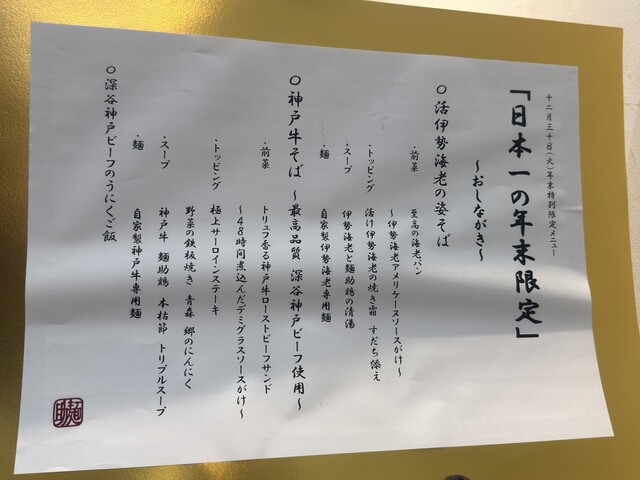 十二月三十日(火)年末特別限定メニュー
「日本一の年末限定」
〜おしながき〜
○活伊勢海老の姿そば
・前菜 至高の海老パン
〜伊勢海老アメリケーヌソースがけ〜
・トッピング 活け伊勢海老の焼き霜 すだち添え
・スープ 伊勢海老と麺助鶏の清湯
・麺 自家製伊勢海老専用麺
○神戸牛そば 〜最高品質 深谷神戸ビーフ使用〜
・前菜 トリュフ香る神戸牛ローストビーフサンド
〜48時間煮込んだデミグラスソースがけ〜
・トッピング 極上サーロインステーキ
野菜の鉄板焼き 青森 郷のにんにく
・スープ 神戸牛 麺助鶏 本枯節 トリプルスープ
・麺 自家製神戸牛専用麺
○深谷神戸ビーフのうにくご飯
麺助